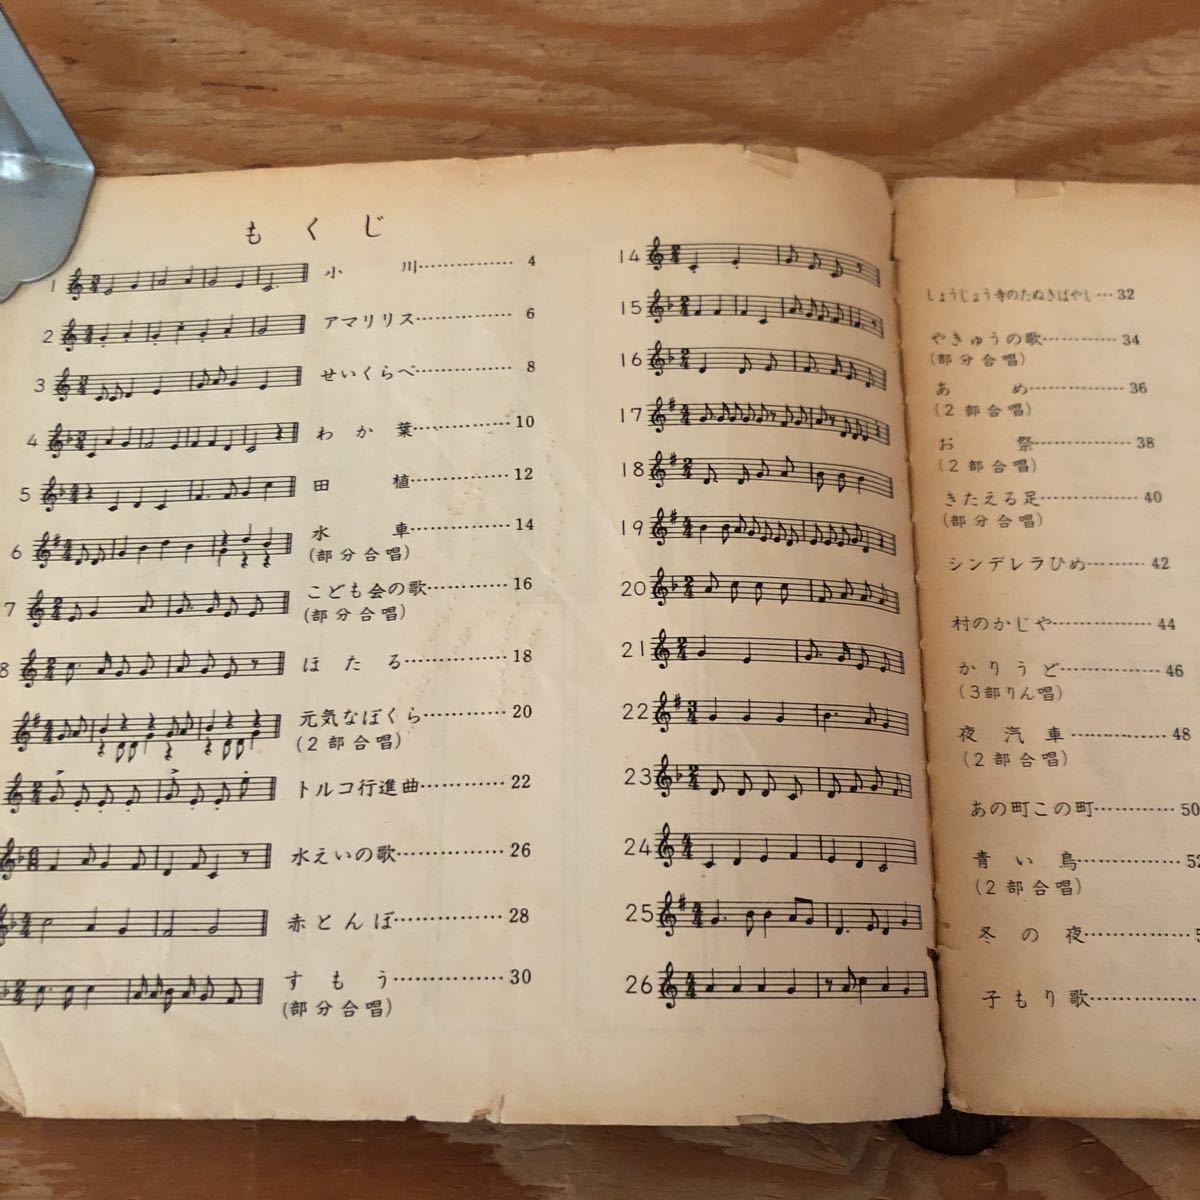 もくじ
1 小川 4
2 アマリリス 6
3 せいくらべ 8
4 わか葉 10
5 田植 12
6 水車 14
(部分合唱)
7 こども会の歌 16
(部分合唱)
8 ほたる 18
元気なぼくら 20
(2部合唱)
トルコ行進曲 22
水えいの歌 26
赤とんぼ 28
すもう 30
(部分合唱)
14 しょうじょう寺のたぬきばやし 32
15 やきゅうの歌 34
(部分合唱)
16 あめ 36
(2部合唱)
17 お祭 38
(2部合唱)
18 きたえる足 40
(部分合唱)
19 シンデレラひめ 42
20 村のかじや 44
21 かりうど 46
(3部りん唱)
22 夜汽車 48
(2部合唱)
23 あの町この町 50
24 青い鳥 52
(2部合唱)
25 冬の夜
26 子もり歌